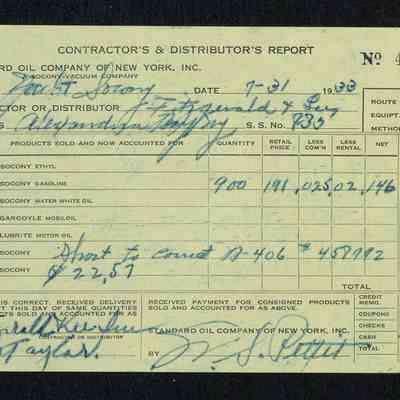 CONTRACTOR'S & DISTRIBUTOR'S REPORT
ARD OIL COMPANY OF NEW YORK, INC. No 4
SOCONY-VACUUM COMPANY
Socony DATE 7-31 1933
CTOR OR DISTRIBUTOR J Fitzgerald & ROUTE
Alexandria Bay Ny S. S. No. 933 EQUIPT.
METHOD
PRODUCTS SOLD AND NOW ACCOUNTED FOR QUANTITY RETAIL PRICE LESS COM'N LESS RENTAL NET
SOCONY ETHYL
SOCONY GASOLINE 900 191 .025 .02 .146
SOCONY WATER WHITE OIL
GARGOYLE MOBILOIL
LUBRITE MOTOR OIL
SOCONY Short to correct A-406 # 458992
SOCONY $22.57
TOTAL
IS CORRECT. RECEIVED DELIVERY
UT THIS DAY OF SAME QUANTITIES
CTS SOLD AS ACCOUNTED FOR
RECEIVED PAYMENT FOR CONSIGNED PRODUCTS
ACCOUNTED FOR AS ABOVE.
CREDIT MEMO.
COUPONS
CHECKS
CASH
TOTAL
CONTRACTOR OR DISTRIBUTOR
TANDARD OIL COMPANY OF NEW YORK, INC.
Taylor. BY S. Pettit